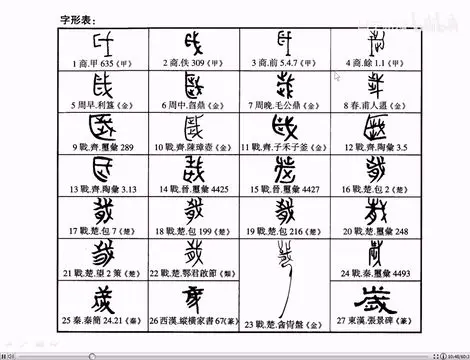 字形表：
1 商.甲 635（甲）
2 商.佚 309（甲）
3 商.前 5.4.7（甲）
4 商.餘 1.1（甲）
5 周早.利簋（金）
6 周中.曶鼎（金）
7 周晚.毛公鼎（金）
8 春.甫人盨（金）
9 戰.齊.璽彙 289
10 戰.齊.陳璋壺（金）
11 戰.齊.子禾子釜（金）
12 戰.齊.陶彙 3.5
13 戰.齊.陶彙 3.13
14 戰.晉.璽彙 4425
15 戰.晉.璽彙 4427
16 戰.楚.包 2（楚）
17 戰.楚.包 7（楚）
18 戰.楚.包 199（楚）
19 戰.楚.包 216（楚）
20 戰.楚.璽彙 248
21 戰.楚.望 2 策（楚）
22 戰.楚.鄂君啟節（類）
23 戰.楚.酓肯盤（金）
24 戰.秦.璽彙 4493
歲
25 秦.秦簡 24.21（秦）
26 西漢.縱橫家書 67（篆）
歲
27 東漢.張景碑（篆）